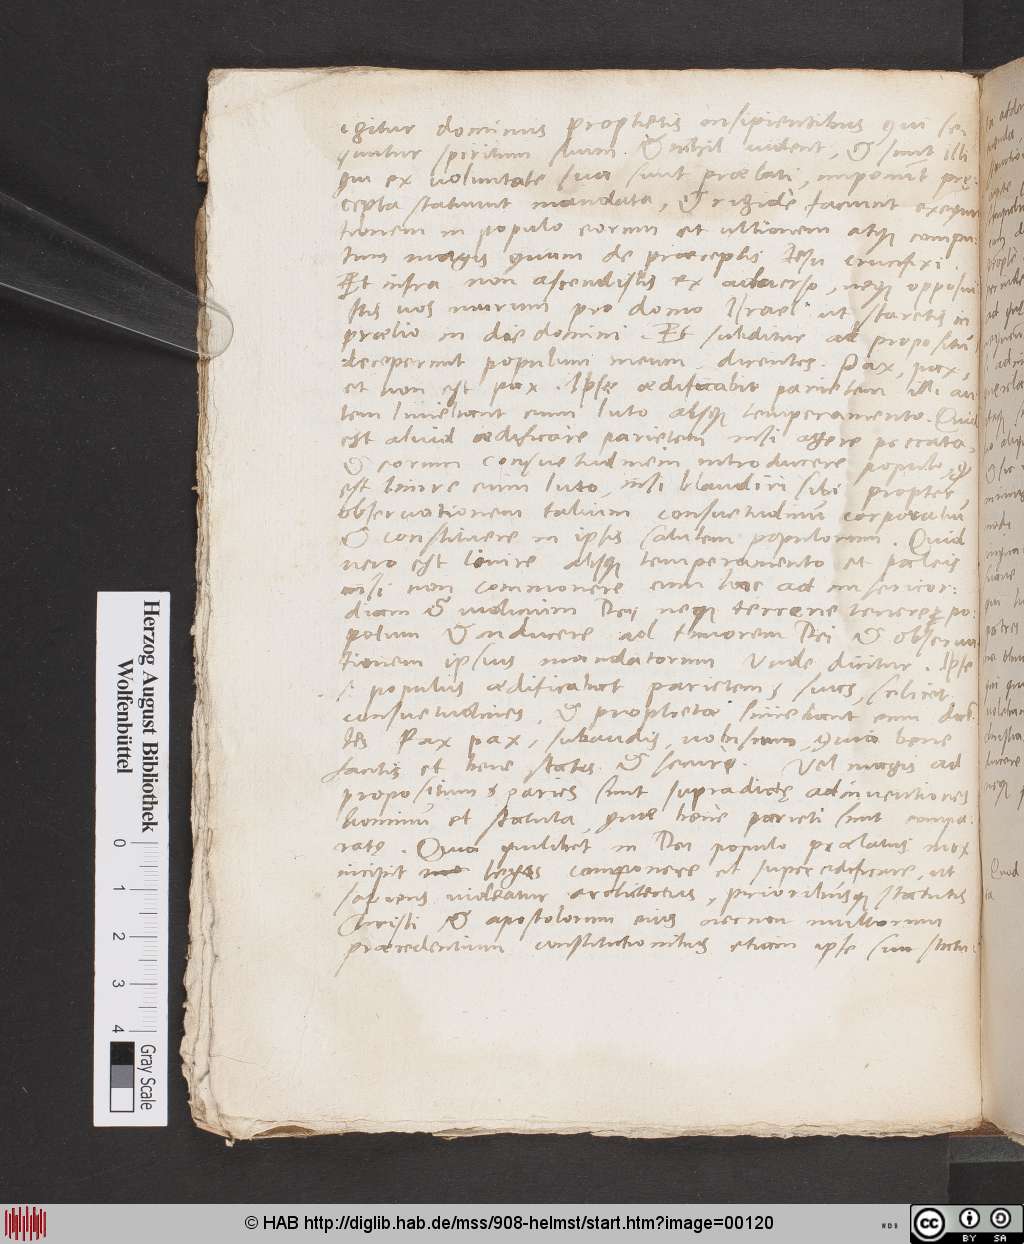 igitur dominus prophetis insipientibus qui se-
quntur spiritum suum. Et nihil uident, & sunt illi
qui ex uoluntate sua sunt prælati, imponunt prę
cepta statuunt mandata, & rigide faciunt exequu
tionem in populo eorum et ultionem atque compu-
tum magis quam de præceptis Iesu crucifixi.
Et infra non ascendistis ex aduerso, neque opposui
stis uos murum pro domo Israel ut staretis in
prælio in die domini. Et subditur ad propositū
deceperunt populum meum dicentes. Pax, pax,
et non est pax. Ipse ædificabat parietem illi au
tem liniebant eum luto absque temperamento. Quid
est aliud ædificare parietem nisi agere peccata,
& eorum consuetudinem introducere populo, &
est linire eum luto, nisi blandiri sibi propter
obseruationem talium consuetudinū corporaliū
& constituere in ipsis salutem populorum. Quid
uero est linire absque temperamento et paleis
nisi non commonere eum hæc ad misericor:
diam & iudicium Dei neque terrere po-
pulum & inducere ad timorem Dei & obserua
tionem ipsius mandatorum Vnde dicitur. Ipse
s. populus ædificabat parietem, suas, scilicet
consuetudines, & prophetæ liniebant eum dicē
tes Pax pax, subaudis, uobiscum, quia bene
facitis et bene statis & secure. Vel magis ad
propositum, paries sunt supradictę adinuentiones
hominū et statuta, quæ bene parieti sunt compa-
ratę. Quia quilibet in Dei populo prælatus mox
incipit leges componere et superedificare, ut
sapiens uideatur architectus, prioribusque statutis
Christi & apostolorum eius necnon multorum
præcedentium constitutionibus etiam ipse sua statu-
Herzog August Bibliothek
Wolfenbüttel
0
1
2
3
4
Gray Scale
© HAB http://diglib.hab.de/mss/908-helmst/start.htm?image=00120
WDB
cc
BY
SA